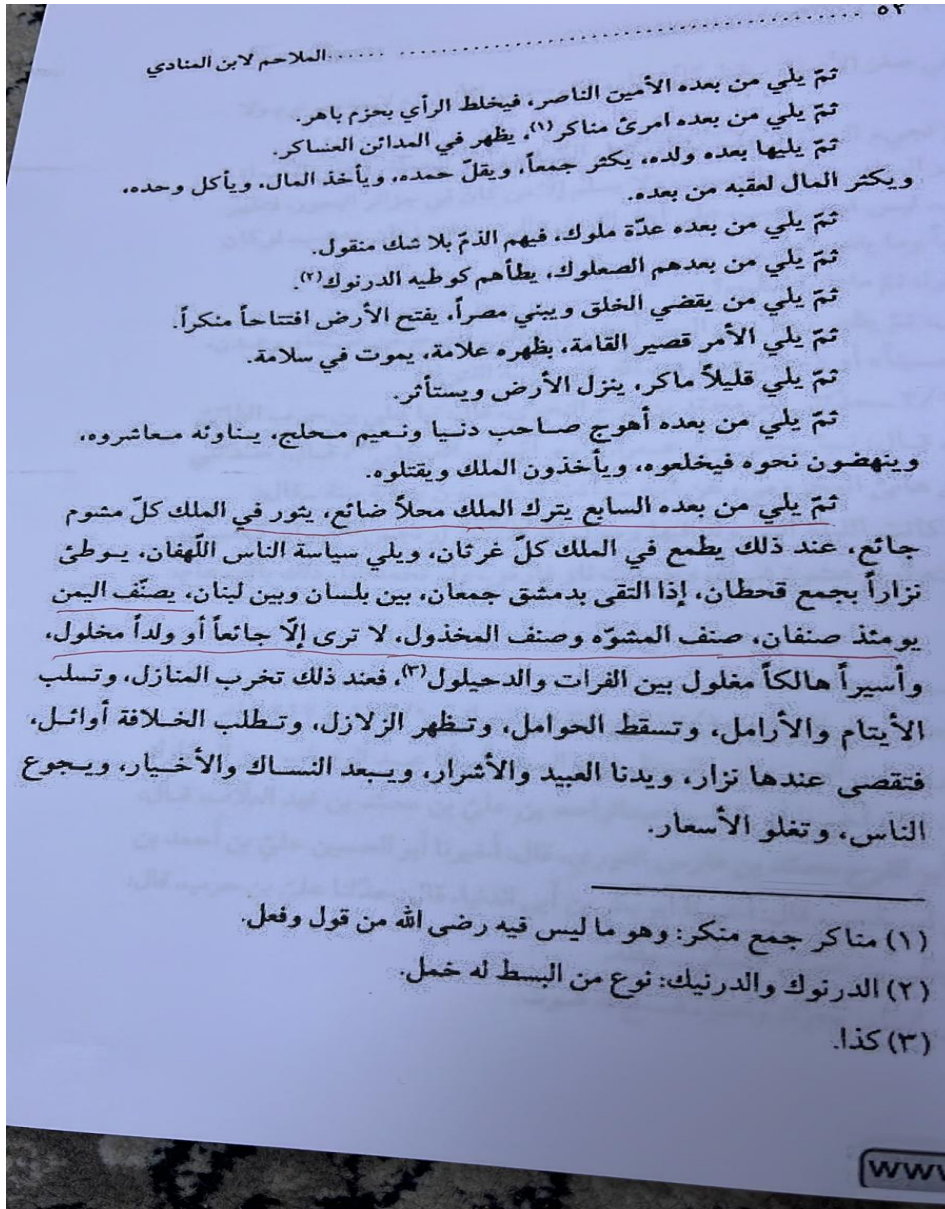 ٥٢ ........................................ الملاحم لابن المنادي
ثمّ يلي من بعده الأمين الناصر، فيخلط الرأي بحزم باهر.
ثمّ يلي من بعده امرئ مناكر(١)، يظهر في المدائن العساكر.
ثمّ يليها بعده ولده، يكثر جمعاً، ويقلّ حمده، ويأخذ المال، ويأكل وحده،
ويكثر المال لعقبه من بعده.
ثمّ يلي من بعده عدّة ملوك، فيهم الذمّ بلا شك منقول.
ثمّ يلي من بعدهم الصعلوك، يطأهم كوطيه الدرنوك(٢).
ثمّ يلي من يقضي الخلق ويبني مصراً، يفتح الأرض افتتاحاً منكراً.
ثمّ يلي الأمر قصير القامة، بظهره علامة، يموت في سلامة.
ثمّ يلي قليلاً ماكر، ينزل الأرض ويستأثر.
ثمّ يلي من بعده أهوج صاحب دنيا ونعيم محلج، يناوئه معاشروه،
وينهضون نحوه فيخلعوه، ويأخذون الملك ويقتلوه.
ثمّ يلي من بعده السابع يترك الملك محلاً ضائع، يثور في الملك كلّ مشوم
جائع، عند ذلك يطمع في الملك كلّ غرثان، ويلي سياسة الناس اللّهفان، يوطئ
نزاراً بجمع قحطان، إذا التقى بدمشق جمعان، بين بلسان وبين لبنان، يصنّف اليمن
يومئذ صنفان، صنف المشوّه وصنف المخذول، لا ترى إلّا جائعاً أو ولداً مخلول،
وأسيراً هالكاً مغلول بين الفرات والدحيلول(٣)، فعند ذلك تخرب المنازل، وتسلب
الأيتام والأرامل، وتسقط الحوامل، وتظهر الزلازل، وتطلب الخلافة أوائل،
فتقصى عندها نزار، ويدنا العبيد والأشرار، ويبعد النساك والأخيار، ويجوع
الناس، وتغلو الأسعار.
(١) مناكر جمع منكر: وهو ما ليس فيه رضى الله من قول وفعل.
(٢) الدرنوك والدرنيك: نوع من البسط له خمل.
(٣) كذا.
www